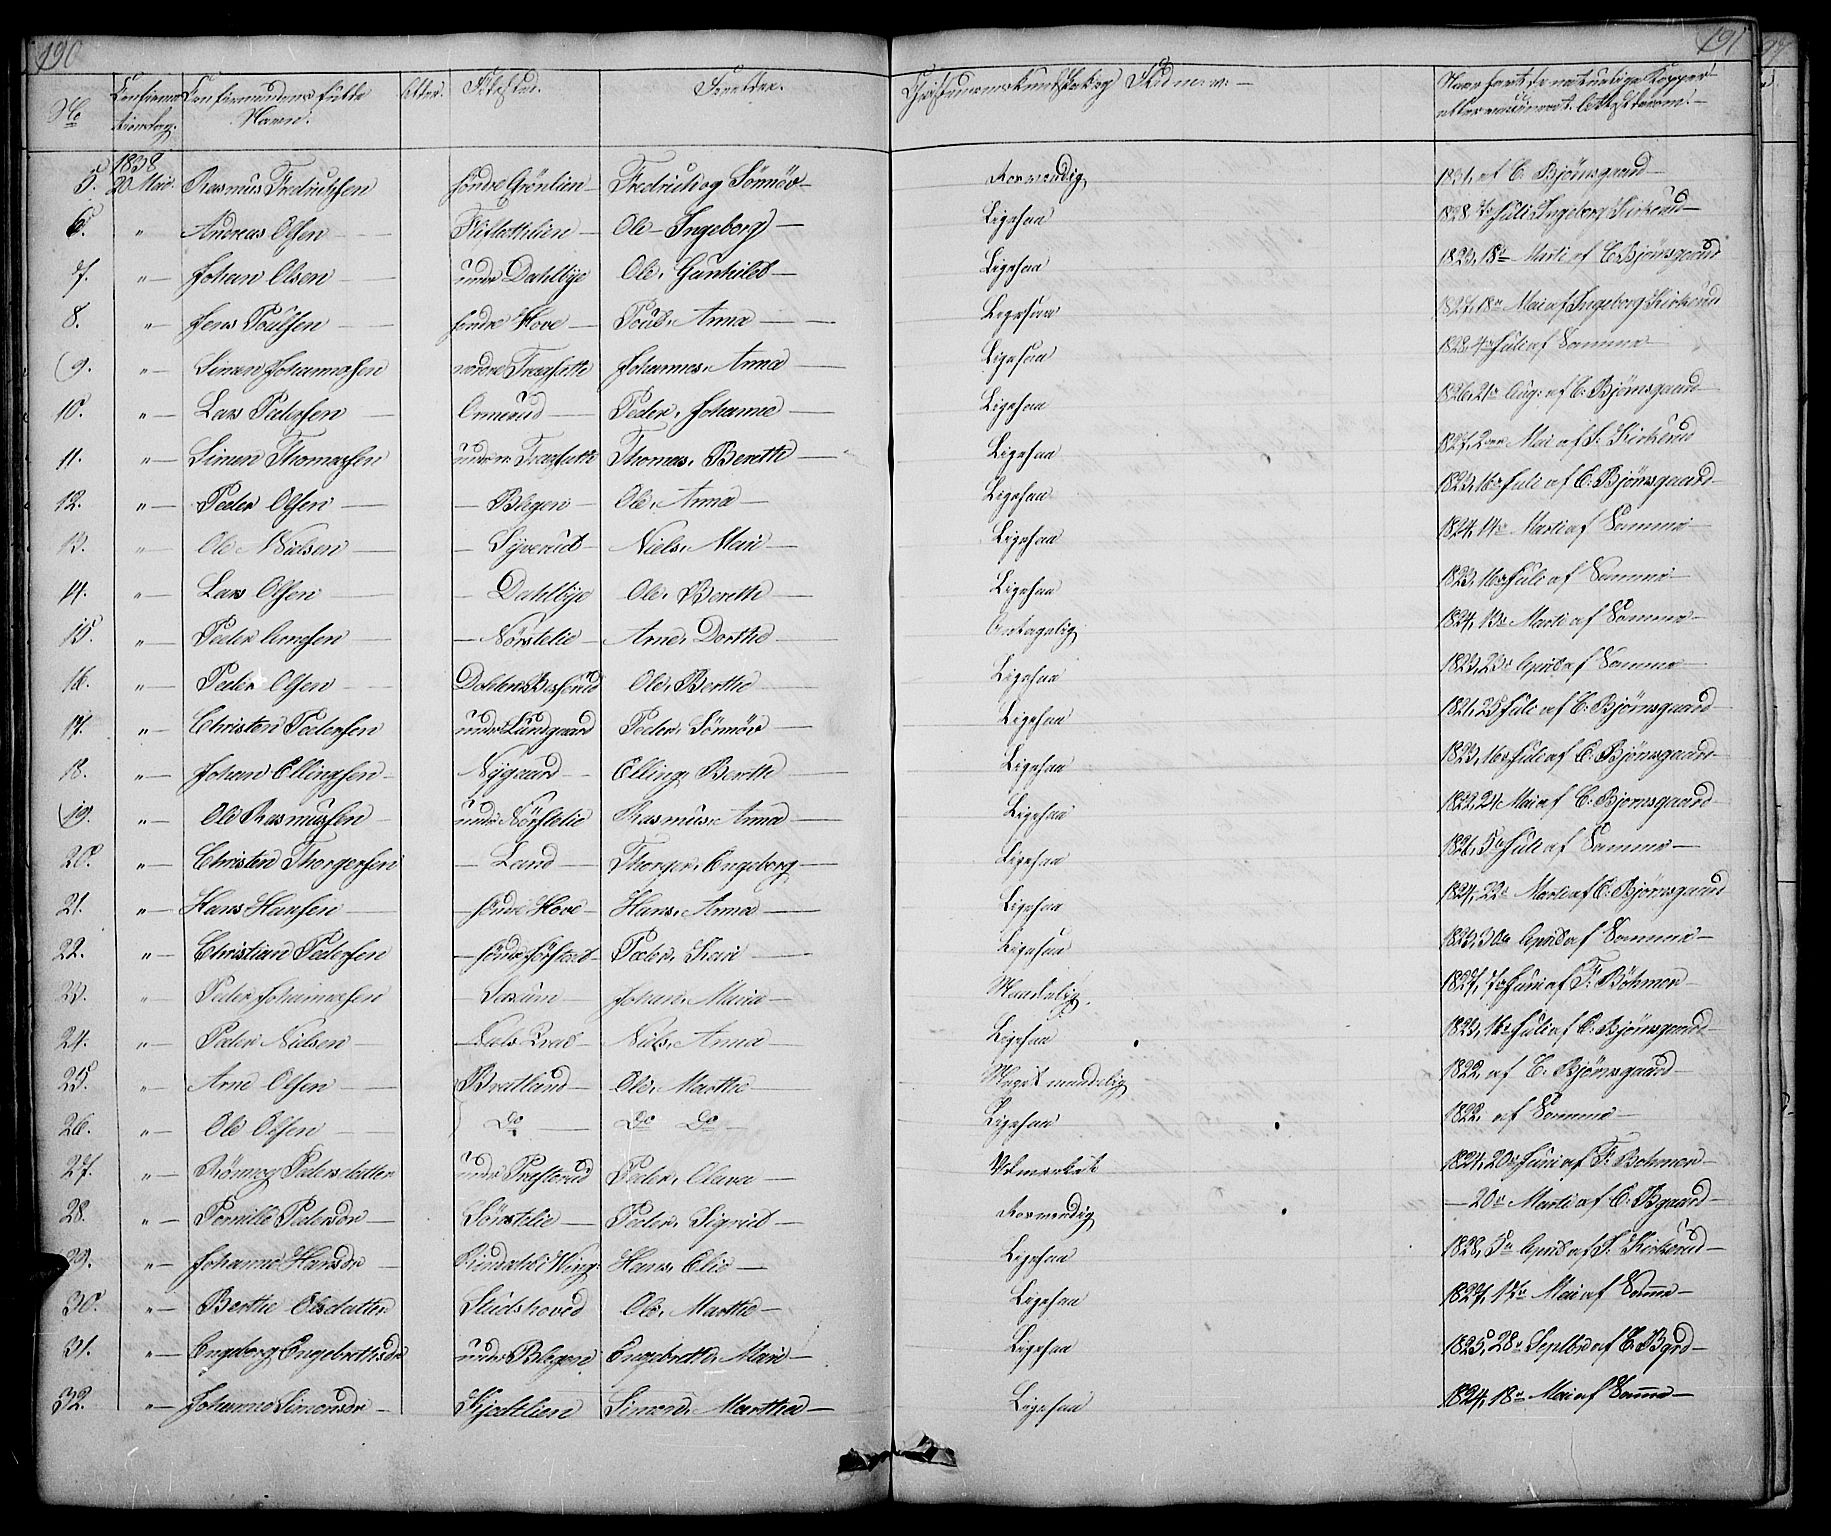 190
191
No Confirmationsdag. Confirmandens fulde Navn. Alder. Fødested. Forældre. Christendomskundskab og Navn har havt de naturlige Kopper eller vaccineret. Attesterne.
5. 1838 20 Mai. Rasmus Fredrichsen søndre Grönlien Fredrich og Sönnöv Forsvendig 1831, af C. Bjørnsgaard
6. " Andreas Olsen Ole Ingeborg Ligesaa 1828 Juli Ingeborg Kirkerud
7. " Johan Olsen under Dahlbye Ole, Gunhild Ligesaa 1823, 18de Marti af C. Bjørnsgaard
8. " Jens Poulsen søndre Hove Poul, Anna Ligesaa 1827, 18de Mai af Ingeborg Kirkerud
9. " Simen Johannesen nordre Johannes, Anna Ligesaa 1828, 4de Juli af Samme
10. " Lars Pedersen Ormerud Peder, Johanne Ligesaa 1826, 21de Aug: af C. Bjørnsgaard
11. " Simen Thomassen under Thomas, Berethe Ligesaa 1827, 2den Mai af I. Kirkerud
12. " Peder Olsen Blegen Ole, Anna Ligesaa 1823, 16de Juli af C. Bjørnsgaard
13. " Ole Nielsen Syverud Niels, Mari Ligesaa 1824, 14de Marti af Samme
14. " Lars Olsen Dahlbye Ole, Berethe Ligesaa 1823, 16de Juli af Samme
15. " Peder Arnesen Nörstelie Arne, Dorthe Antagelig 1824, 13de Marti af Samme
16. " Peder Olsen Ole, Berthe Ligesaa 1823, 23de April af Samme
17. " Christen Pedersen under Lunsgaard Peder, Sönnöv Ligesaa 1821, 25 Juli af C. Bjørnsgaard
18. " Johan Ellingsen Nygaard Elling, Berthe Ligesaa 1823, 16de Juli af C. Bjørnsgaard
19. " Ole Rasmussen under Nörstelie Rasmus, Anna Ligesaa 1822, 24 Mai af C. Bjørnsgaard
20. " Christen Thorgersen Land Thorger, Engeborg Ligesaa 1826, 5te Juli af Samme
21. " Hans Hansen søndre Hove Hans, Anna Ligesaa 1824, 22de Marti af C. Bjørnsgaard
22. " Christian Pedersen søndre Peder, Kari Ligesaa 1823, 30de April af Samme
23. " Peder Johannesen Johan, Maria Maadelig. 1827, Juni af F. Böhmer
24. " Peder Nielsen Niels, Anna Ligesaa 1823, 16de Juli af C. Bjørnsgaard
25. " Arne Olsen Bratland Ole, Marthe Meget maadelig 1822, af C. Bjørnsgaard
26. " Ole Olsen Do Do Do Ligesaa 1822, af Samme
27. " Rönnog Pedersdatter under Præsterud Peder, Olava Udmærket 1824, 20de Juni af F. Bohmer
28. " Pernille Pedersdr Sörstelie Peder, Sigrid Forsvendig 20de Marti af C. Bgaard
29. " Johanne Hansdr Hans, Elie Ligesaa 1828, 5te April af I. Kirkerud
30. " Berthe Olsdatter Studshoved Ole, Marthe Ligesaa 1827, Mai af Samme
31. " Engeborg Engebrethsdr under Blegen Engebreth, Mari Ligesaa 1825, 28de Septbr af C. Bgrd
32. " Johanne Simensdr Kjodelien Simen, Marthea Ligesaa 1824, 18de Mai af Samme